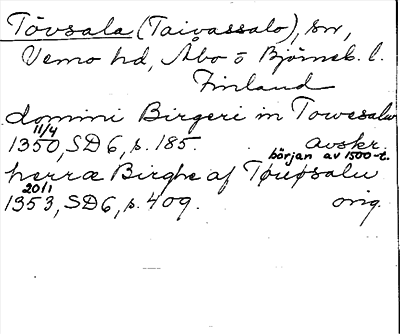 Tövsala (Taivassalo), sn,
Vemo hd, Åbo o Björneb. l.
Finland
domini Birgeri in Towssalu
11/4
1350, SD 6, p. 185. avskr.
början av 1500-t.
herræ Birghe af Tøuøsalu
20/1
1353, SD 6, p. 409. orig.